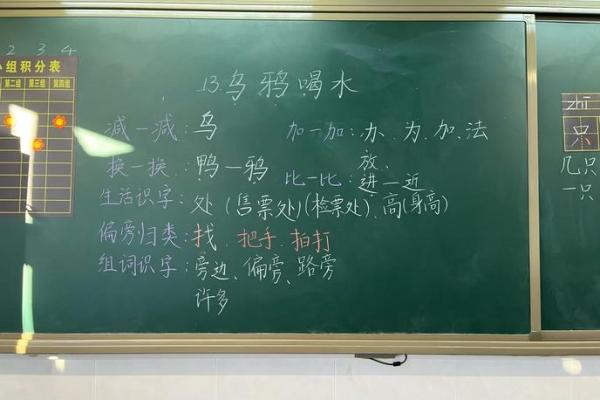 2 3 4
小组积分表
第二组 第三组 第四组
13.乌鸦喝水
减一减:乌 加一加:办、为、加、法
放、
换一换:鸭—鸦 比一比:进—近
生活识字:处(售票处)(检票处)、高(身高)
偏旁归类:找、把手、拍打
组词识字:旁边、偏旁、路旁
许多
zhī
只
几只
一只